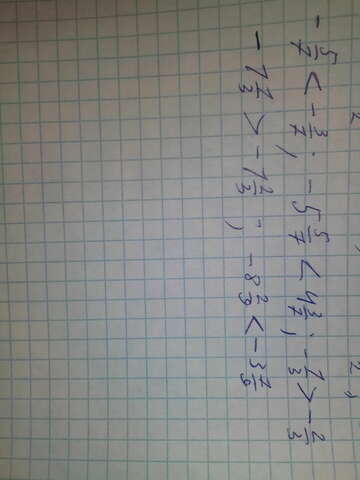 2 , 2 ,
- 5/7 < - 3/7 ; - 5 5/7 < 4 3/7 ; - 1/3 > - 2/3
- 1 1/3 > - 1 2/3 ; - 8 2/9 < - 3 7/9